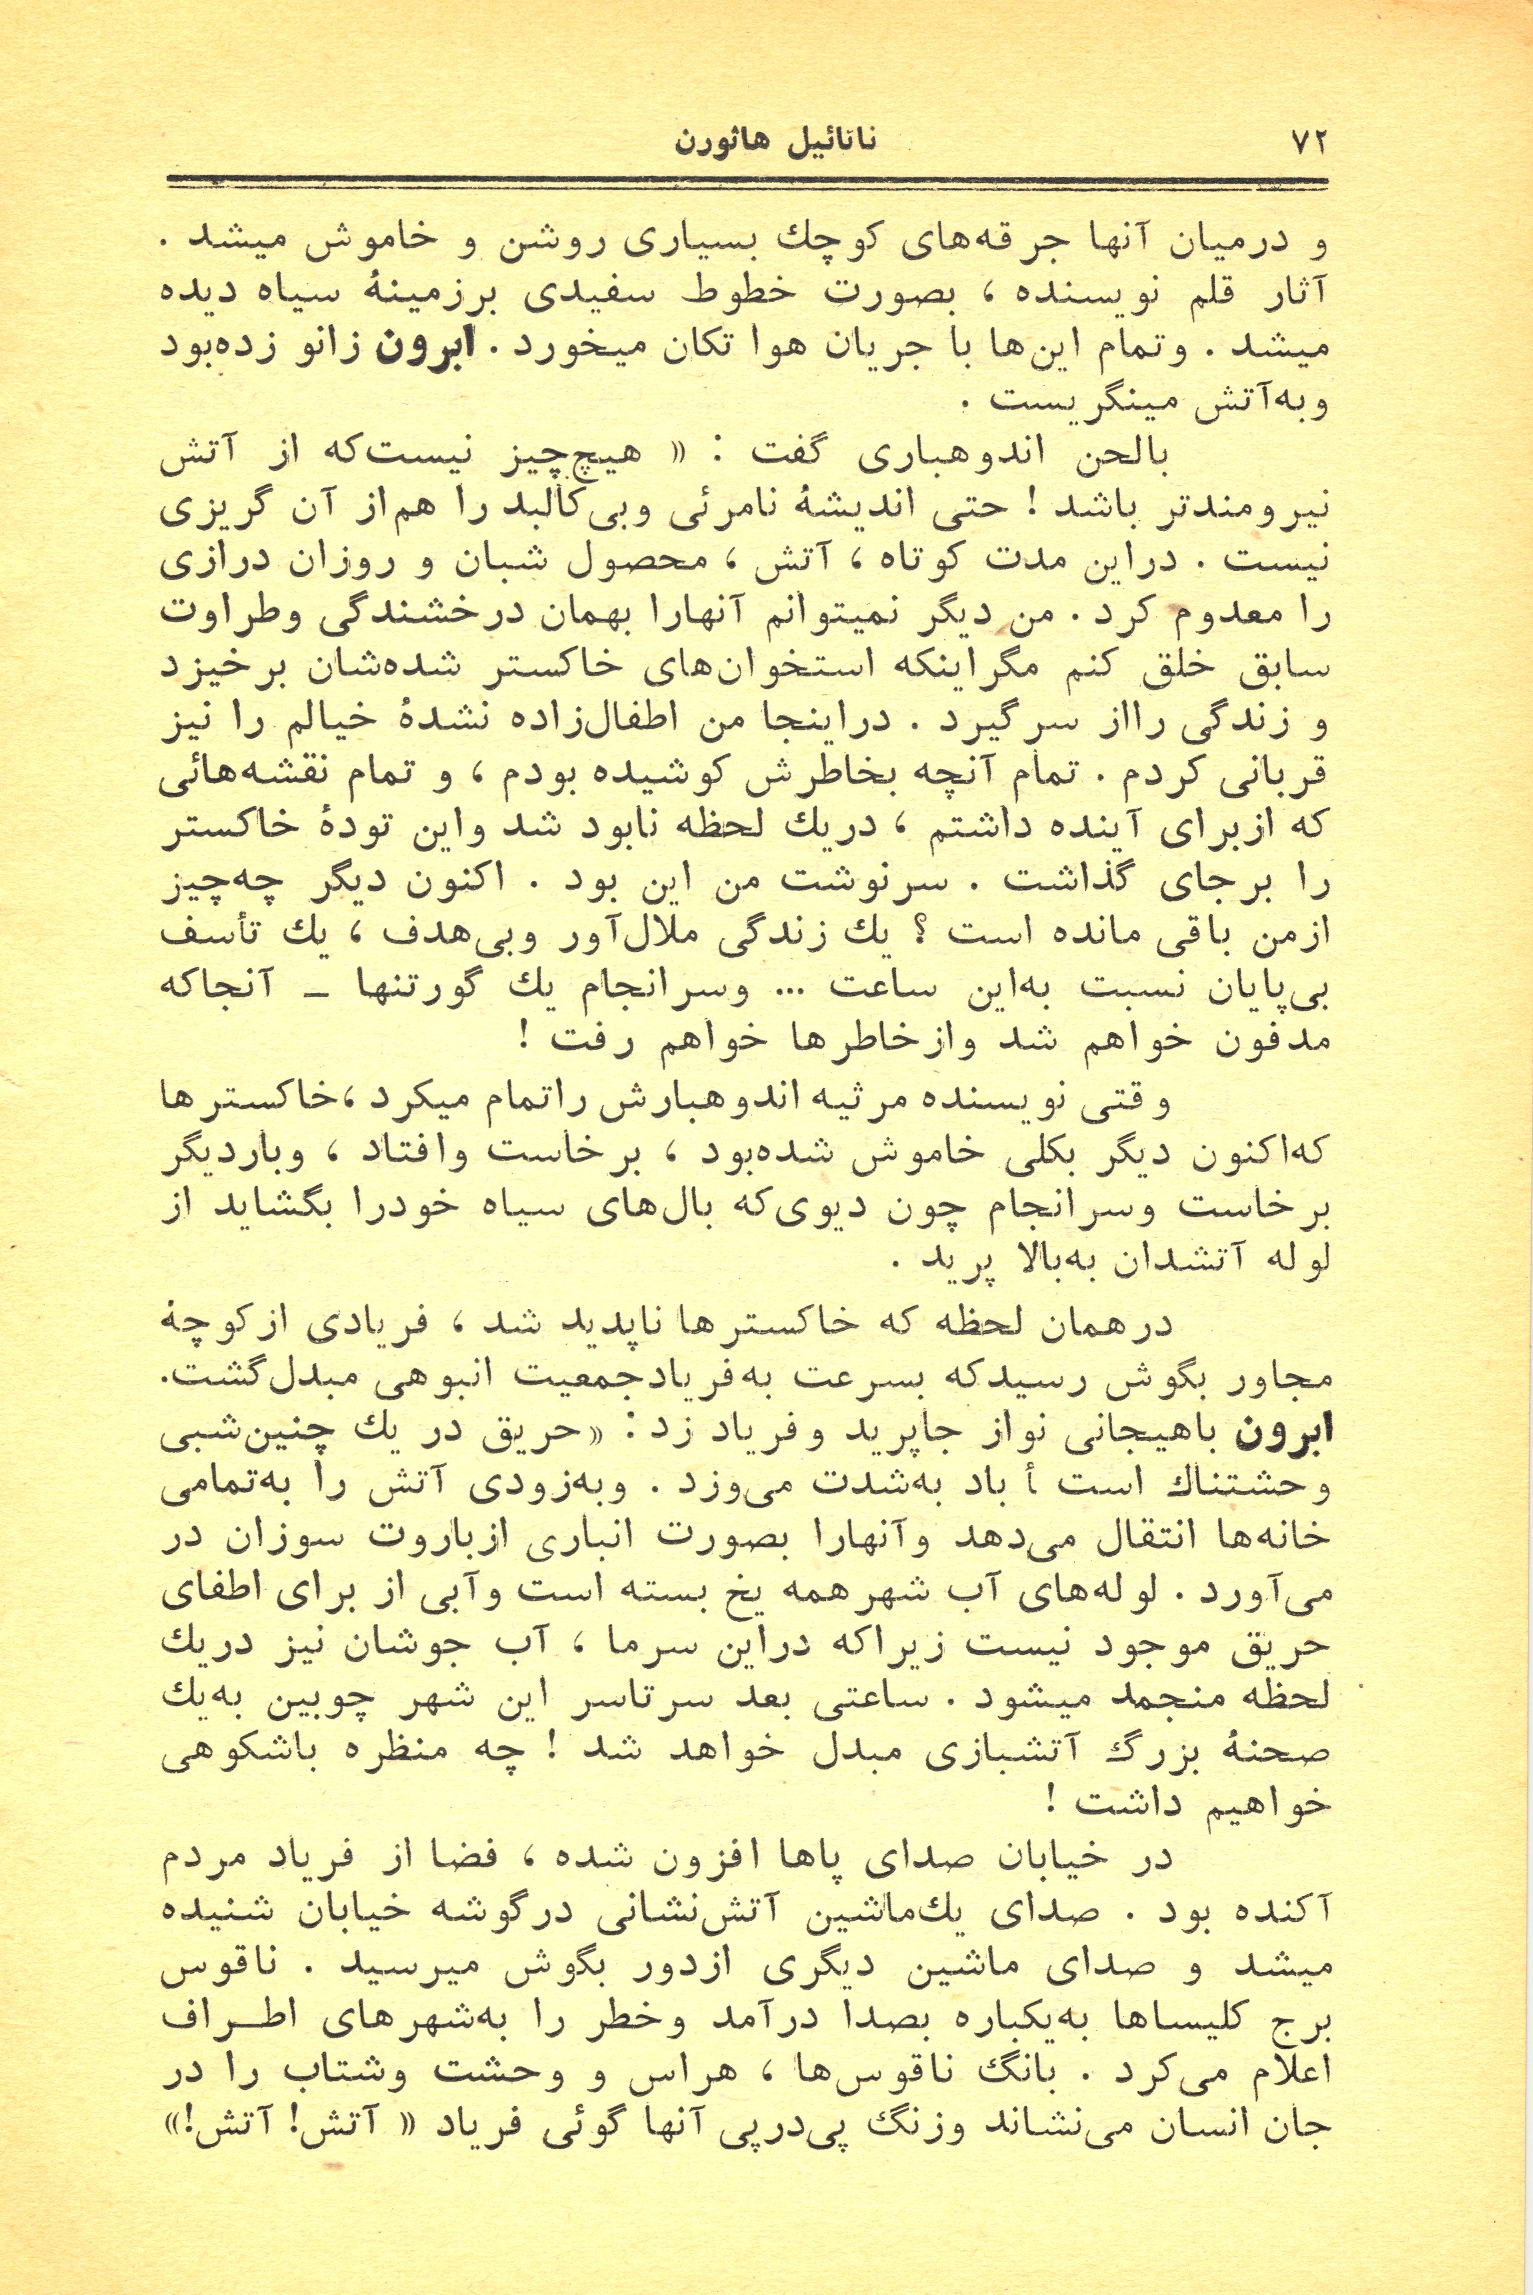 ۷۲
ناتائیل هاثورن
و درمیان آنها جرقه‌های کوچك بسیاری روشن و خاموش میشد .
آثار قلم نویسنده ، بصورت خطوط سفیدی برزمینهٔ سیاه دیده
میشد . وتمام این‌ها با جریان هوا تکان میخورد . ابرون زانو زده‌بود
وبه‌آتش مینگریست .
بالحن اندوهباری گفت : « هیچ‌چیز نیست‌که از آتش
نیرومندتر باشد ! حتی اندیشهٔ نامرئی وبی‌کالبد را هم‌از آن گریزی
نیست . دراین مدت کوتاه ، آتش ، محصول شبان و روزان درازی
را معدوم کرد . من دیگر نمیتوانم آنهارا بهمان درخشندگی وطراوت
سابق خلق کنم مگراینکه استخوان‌های خاکستر شده‌شان برخیزد
و زندگی رااز سرگیرد . دراینجا من اطفال‌زاده نشدهٔ خیالم را نیز
قربانی کردم . تمام آنچه بخاطرش کوشیده بودم ، و تمام نقشه‌هائی
که ازبرای آینده داشتم ، دریك لحظه نابود شد واین تودهٔ خاکستر
را برجای گذاشت . سرنوشت من این بود . اکنون دیگر چه‌چیز
ازمن باقی مانده است ؟ یك زندگی ملال‌آور وبی‌هدف ، یك تأسف
بی‌پایان نسبت به‌این ساعت ... وسرانجام یك گورتنها ـ آنجاکه
مدفون خواهم شد وازخاطرها خواهم رفت !
وقتی نویسنده مرثیه اندوهبارش راتمام میکرد ،خاکسترها
که‌اکنون دیگر بکلی خاموش شده‌بود ، برخاست وافتاد ، وباردیگر
برخاست وسرانجام چون دیوی‌که بال‌های سیاه خودرا بگشاید از
لوله آتشدان به‌بالا پرید .
درهمان لحظه که خاکسترها ناپدید شد ، فریادی ازکوچهٔ
مجاور بگوش رسیدکه بسرعت به‌فریادجمعیت انبوهی مبدل‌گشت.
ابرون باهیجانی نواز جاپرید وفریاد زد : «حریق در یك چنین‌شبی
وحشتناك است أ باد به‌شدت می‌وزد . وبه‌زودی آتش را به‌تمامی
خانه‌ها انتقال می‌دهد وآنهارا بصورت انباری ازباروت سوزان در
می‌آورد . لوله‌های آب شهرهمه یخ بسته است وآبی از برای اطفای
حریق موجود نیست زیراکه دراین سرما ، آب جوشان نیز دریك
لحظه منجمد میشود . ساعتی بعد سرتاسر این شهر چوبین به‌یك
صحنهٔ بزرگ آتشبازی مبدل خواهد شد ! چه منظره باشکوهی
خواهیم داشت !
در خیابان صدای پاها افزون شده ، فضا از فریاد مردم
آکنده بود . صدای یك‌ماشین آتش‌نشانی درگوشه خیابان شنیده
میشد و صدای ماشین دیگری ازدور بگوش میرسید . ناقوس
برج کلیساها به‌یکباره بصدا درآمد وخطر را به‌شهرهای اطـراف
اعلام می‌کرد . بانگ ناقوس‌ها ، هراس و وحشت وشتاب را در
جان انسان می‌نشاند وزنگ پی‌درپی آنها گوئی فریاد « آتش! آتش!»